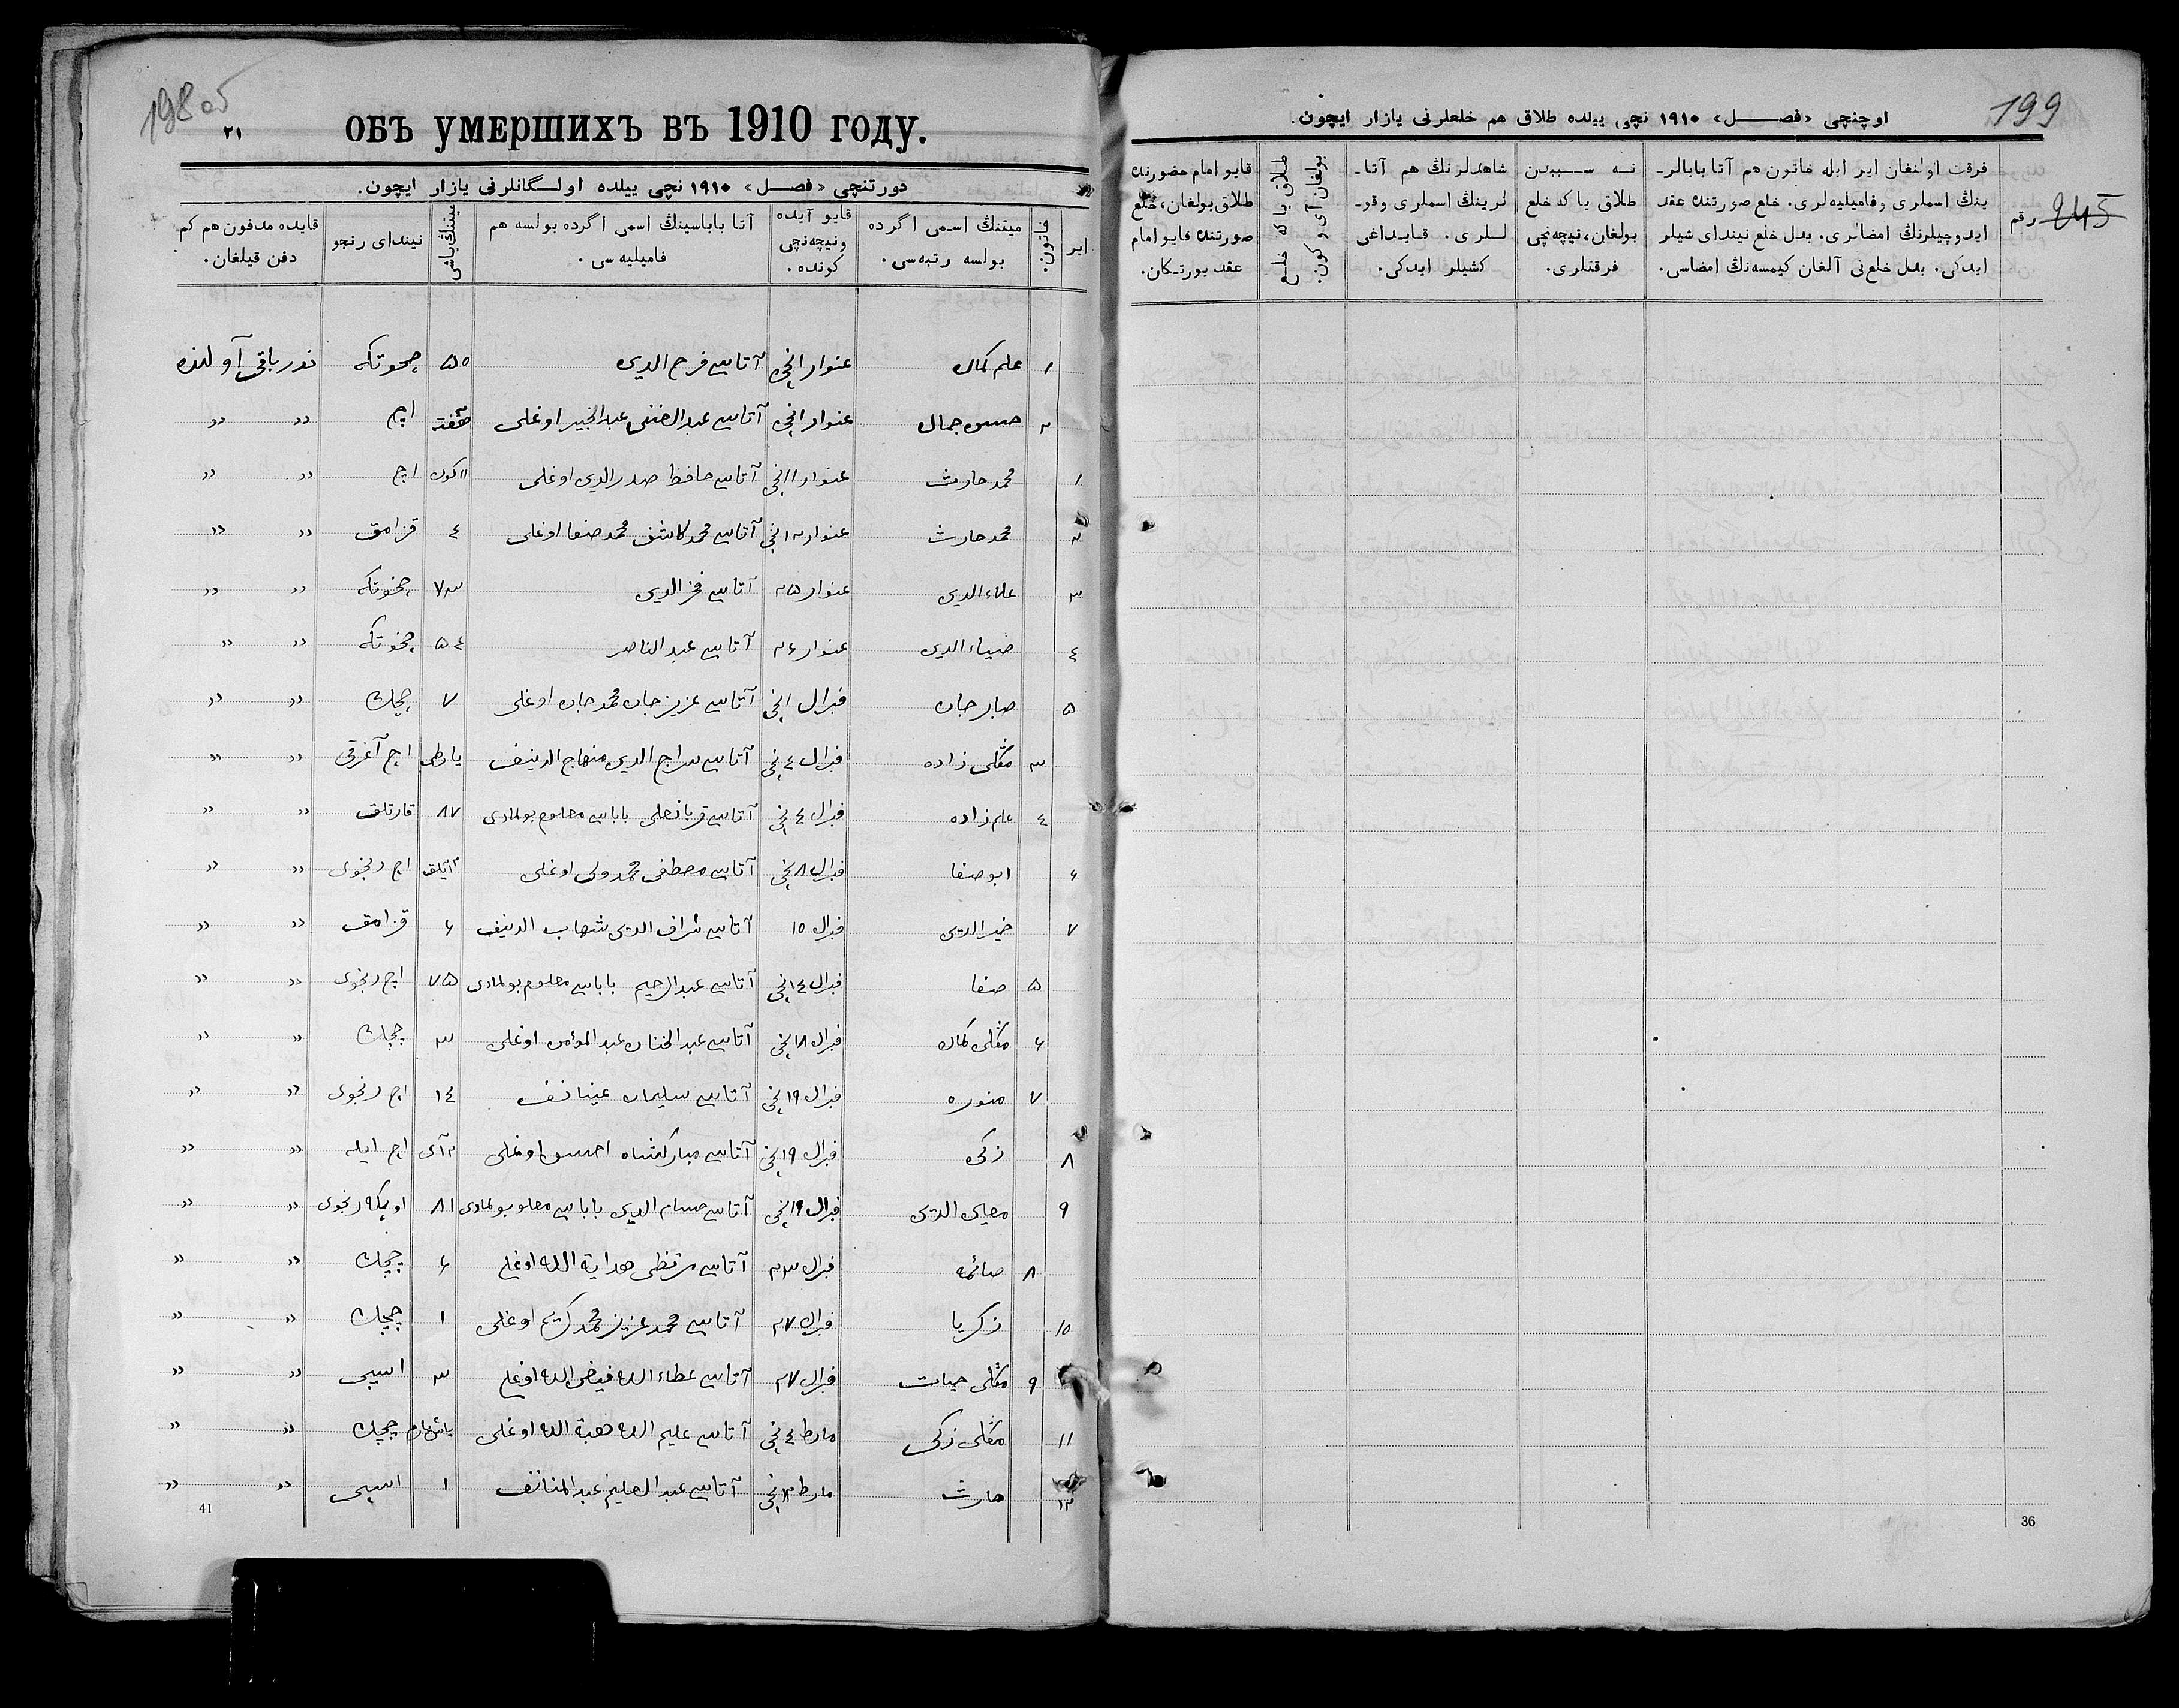 198 об
٢١
объ умершихъ въ 1910 году.
دورتنچی «فصل» ١٩١٠ نچی ییلده اولگانلرنی یازار ایچون.
ایر
خاتون.
میتنڭ اسمی اگرده بولسه رتبه‌سی.
قایو آیده ونیچه‌نچی کونده.
آتا باباسینڭ اسمی اگرده بولسه هم فامیلیه سی.
میتنڭ یاشی
نیندای رنجو
قایده مدفون هم کم دفن قیلغان.
١ علم کمال عنوار ١نچی آتاسی فرح الدین ٥٥ چحوتکه ندرباقی آولنده
٢ حسن جمال عنوار ١نچی آتاسی عبدالغنی عبدالخبیر اوغلی هفته اچ " "
١ محمد حارث عنوار ١١نچی آتاسی حافظ صدرالدین اوغلی ١١ کون اچ " "
٢ محمد حارث عنوار ١٢نچی آتاسی محمد کاشف محمد صفا اوغلی ٤ قزامق " "
٣ علاءالدین عنوار ٢٥ آتاسی فخرالدین ٧٣ چخوتکه " "
٤ ضیاءالدین عنوار ٢٦ آتاسی عبدالناصر ٥٤ چخوتکه " "
٥ صابرجان فبرال ١نچی آتاسی عزیزجان محمدجان اوغلی ٧ چچك " "
٣ مڭلی زاده فبرال ٤نچی آتاسی سراج الدین منهاج الدینف یارطی اچ آغرقی " "
٤ علم زاده فبرال ٤نچی آتاسی قربانعلی باباسی معلوم بولمادی ٨٧ قارتلق " "
٦ ابوصفا فبرال ٨نچی آتاسی مصطفی محمدولی اوغلی ٢ آیلق اچ رنجوی " "
٧ خیرالدین فبرال ١٥ آتاسی شراف الدین شهاب الدینف ٦ قزامق " "
٥ صفا فبرال ١٤نچی آتاسی عبدالرحیم باباسی معلوم بولمادی ٧٥ اچ رنجوی " "
٦ مڭلی کمال فبرال ١٨نچی آتاسی عبدالحنان عبدالمؤمن اوغلی ٣ چچك " "
٧ منوره فبرال ١٩نچی آتاسی سلیمان عینانف ١٤ اچ رنجوی " "
٨ زکی فبرال ١٩نچی آتاسی مبارکشاه احسن اوغلی ٢ آی اچ ایله " "
٩ محیی الدین فبرال ١٩نچی آتاسی حسام الدین باباسی معلوم بولمادی ٨١ اوپکه رنجوی " "
٨ صائمه فبرال ٢٣ آتاسی مرتظی هدایة الله اوغلی ٦ چچك " "
١٠ زکریا فبرال ٢٧ آتاسی محمدعزیز محمدکریم اوغلی ١ چچك " "
٩ مڭلی حیات فبرال ٢٧ آتاسی عطاء الله فیض الله اوغلی ٣ اسیبی " "
١١ مڭلی زکی مارط ٤نچی آتاسی علیم الله هبة الله اوغلی چچك " "
١٢ حارث مارط آتاسی عبدالعلیم عبدالمنانف ١ اسیبی " "
41
199
اوچنچی «فصل» ١٩١٠ نچی ییلده طلاق هم خلعلرنی یازار ایچون.
245
رقم
فرقت اولنغان ایر ایله خاتون هم آتا بابالرـ
ینڭ اسملری وفامیلیه‌لری. خلع صورتنده عقد
ایدوچیلرنڭ امضالری. بدل خلع نیندای شیلر
ایدکی. بدل خلع نی آلغان کیمسه‌نڭ امضاسی.
نه سببدن
طلاق یا که خلع
بولغان، نیچه‌نچی
فرقتلری.
شاهدلرنڭ هم آتاـ
لرینڭ اسملری وقوـ
للری. قایداغی
کشیلر ایدکی.
طلاق یا که خلع بولغان آی و کون.
قایو امام حضورنده
طلاق بولغان، خلع
صورتنده قایو امام
عقد یورتکان.
36